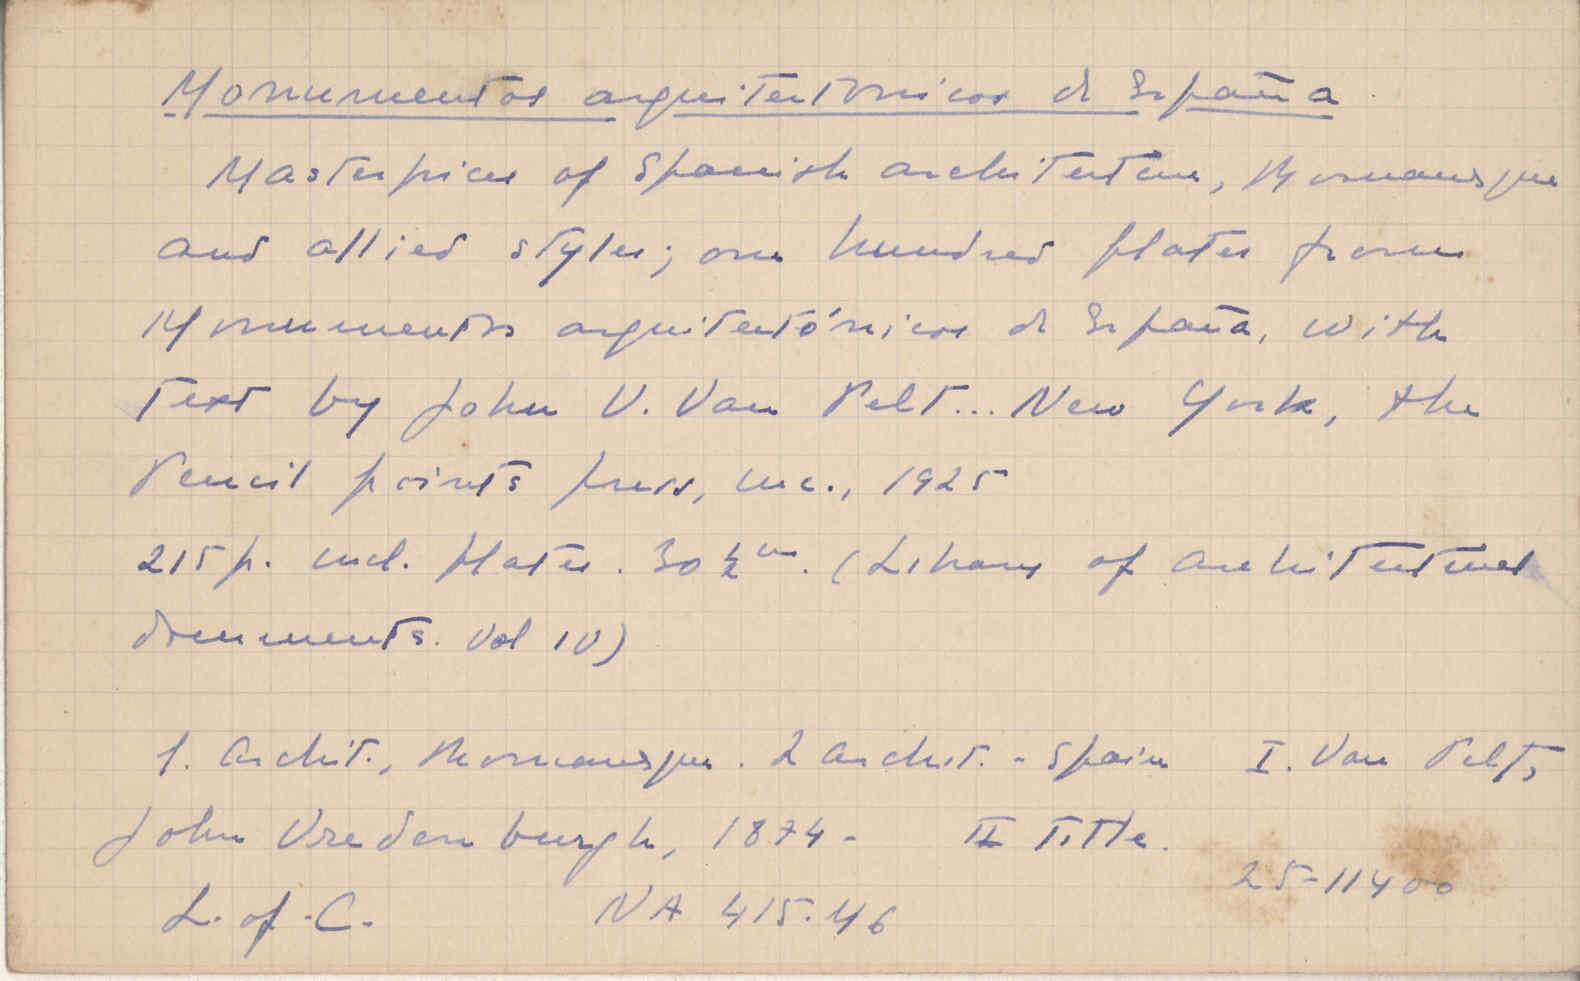 Monumentos arquitectonicos de España
Masterpieces of Spanish architecture, Romanesque
and allied styles; one hundred plates from
Monumentos arquitectónicos de España, with
text by John V. Van Pelt... New York, the
Pencil points press, inc., 1925
215 p. incl. plates. 30 ½ cm. (Library of architectural
documents. Vol IV)
1. Archit., Romanesque. 2 Archit. - Spain I. Van Pelt,
John Vredenburgh, 1874- II Title.
25-11400
L. of C. NA 415.M6